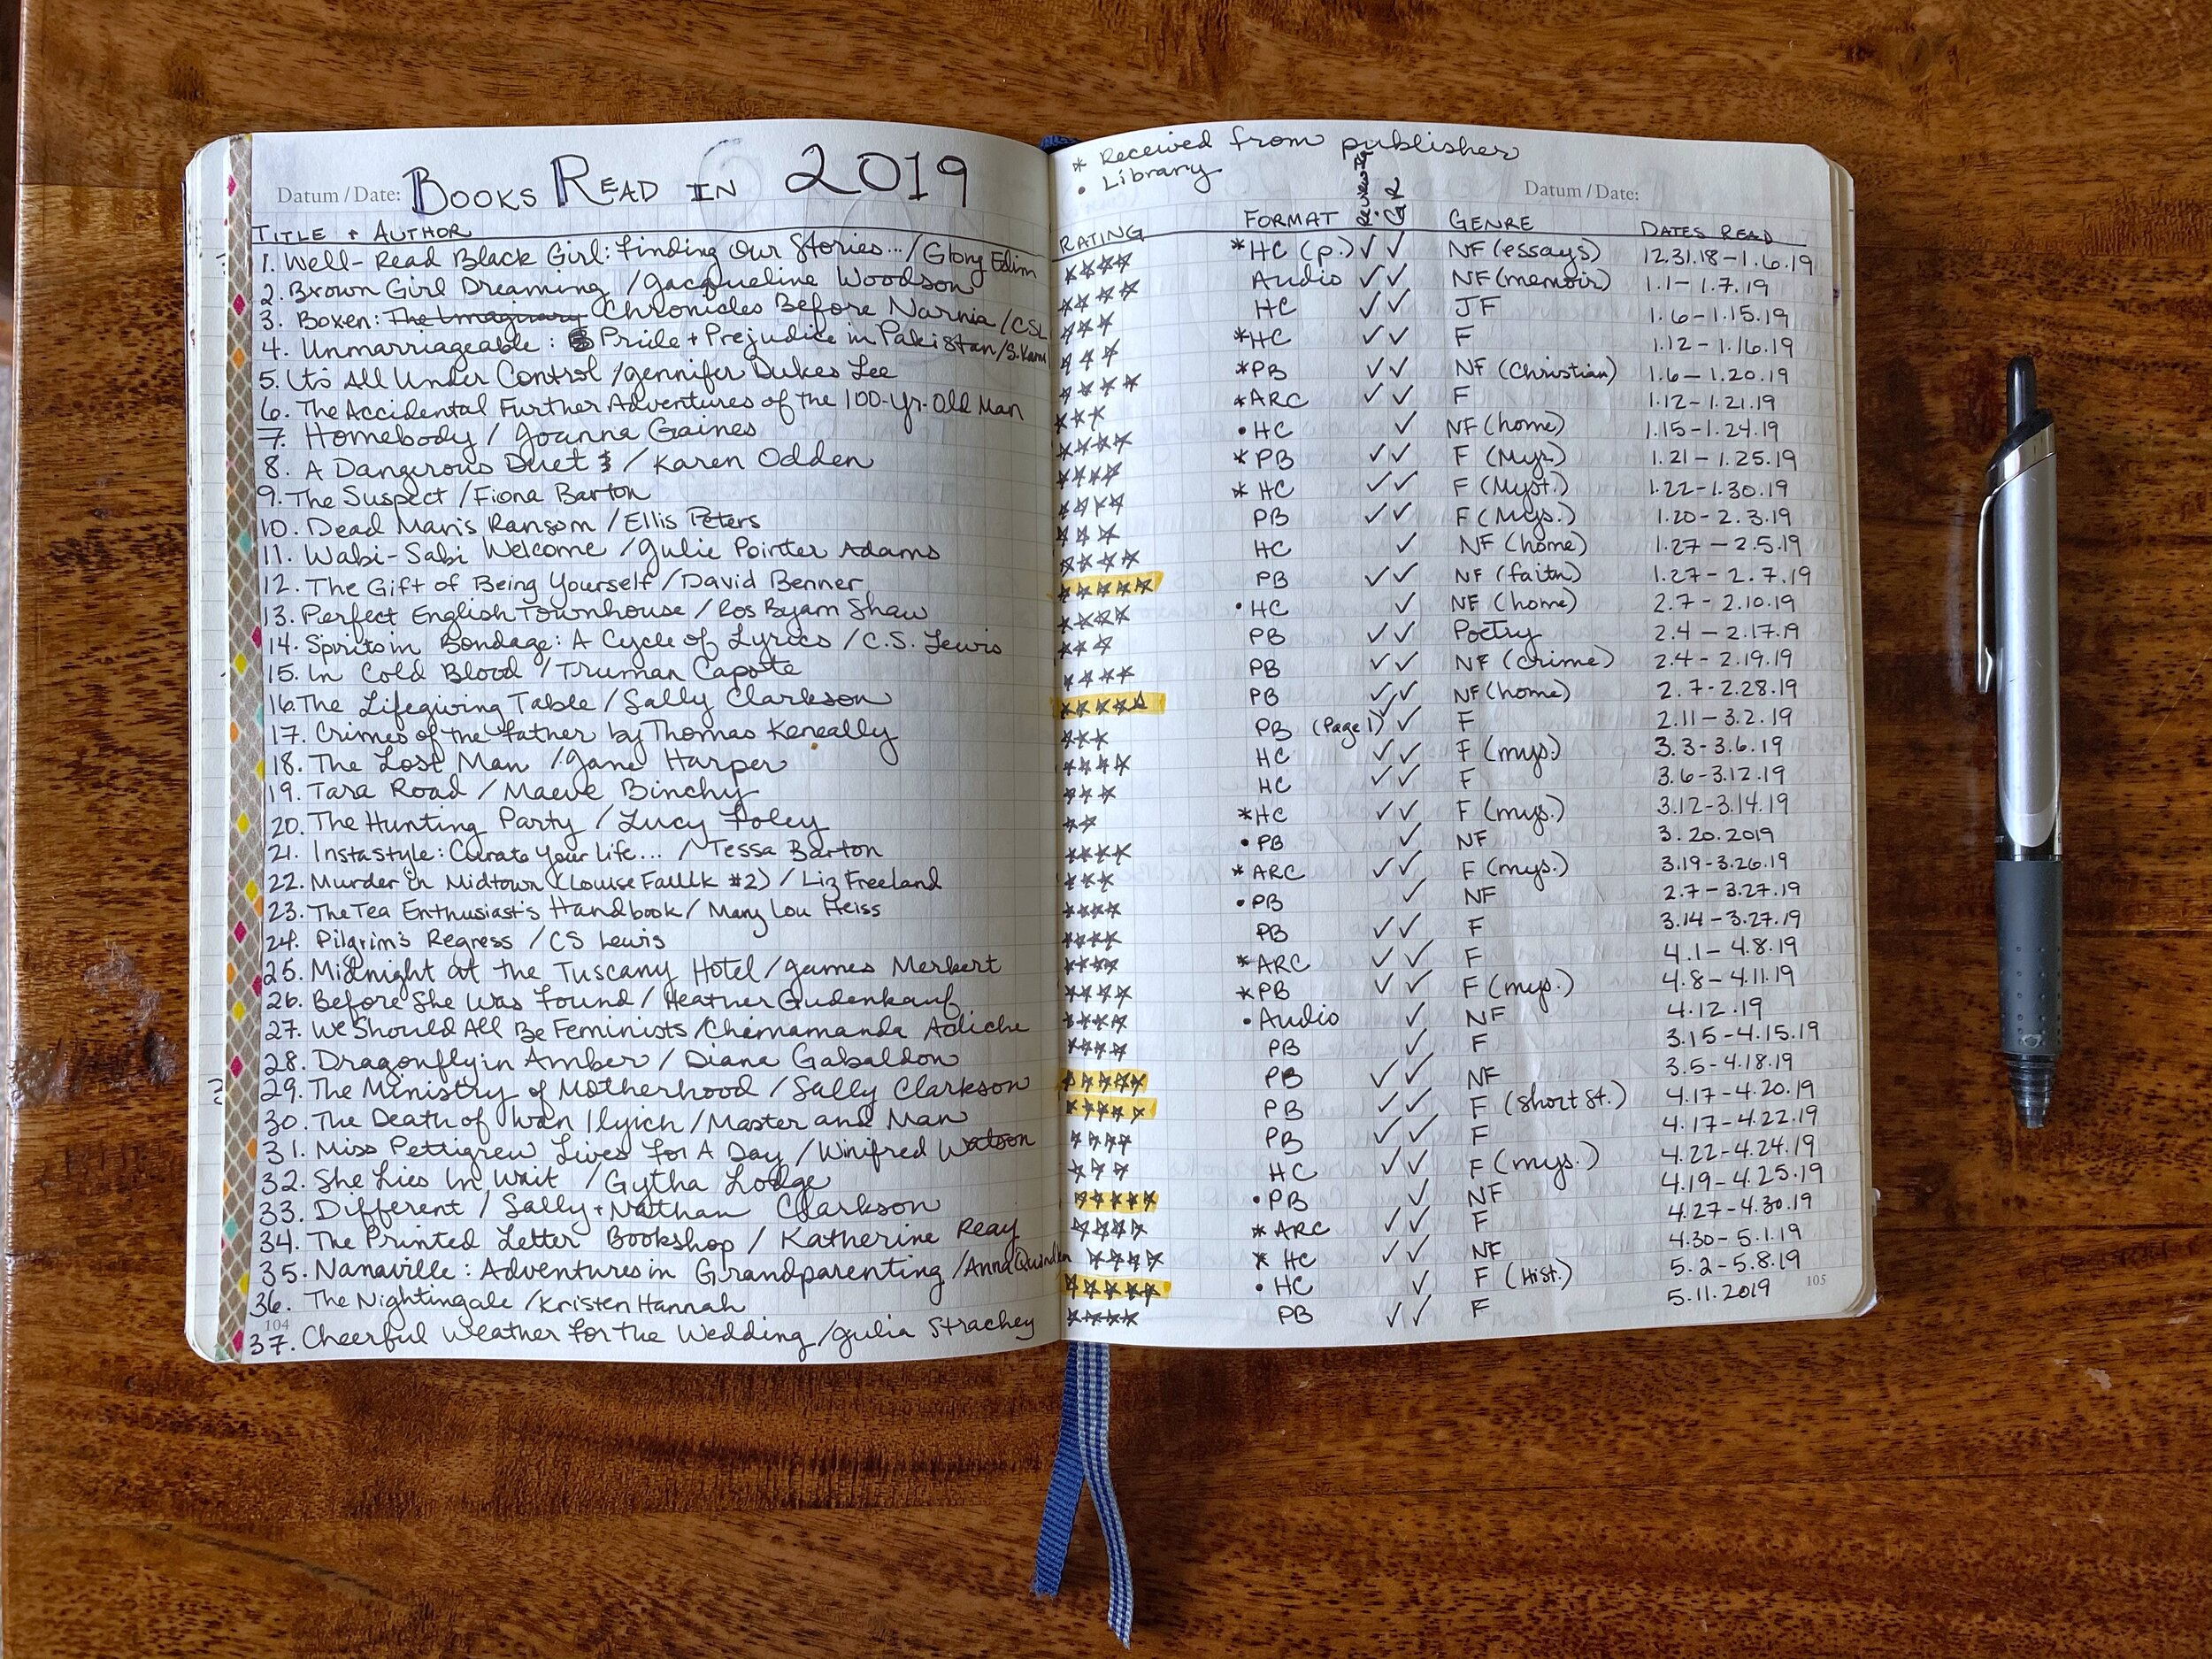 Datum / Date: BOOKS READ IN 2019
TITLE + AUTHOR
1. Well-Read Black Girl: Finding Our Stories... / Glory Edim
2. Brown Girl Dreaming / Jacqueline Woodson
3. Boxen: The Imaginary Chronicles Before Narnia / CSL
4. Unmarriageable: Pride + Prejudice in Pakistan / S. Kamal
5. It's All Under Control / Jennifer Dukes Lee
6. The Accidental Further Adventures of the 100-Yr-Old Man
7. Homebody / Joanna Gaines
8. A Dangerous Duet / Karen Odden
9. The Suspect / Fiona Barton
10. Dead Man's Ransom / Ellis Peters
11. Wabi-Sabi Welcome / Julie Pointer Adams
12. The Gift of Being Yourself / David Benner
13. Perfect English Townhouse / Ros Byam Shaw
14. Spirits in Bondage: A Cycle of Lyrics / C.S. Lewis
15. In Cold Blood / Truman Capote
16. The Lifegiving Table / Sally Clarkson
17. Crimes of the Father by Thomas Keneally
18. The Lost Man / Jane Harper
19. Tara Road / Maeve Binchy
20. The Hunting Party / Lucy Foley
21. Instastyle: Curate Your Life... / Tessa Barton
22. Murder in Midtown (Louise Faulk #2) / Liz Freeland
23. The Tea Enthusiast's Handbook / Mary Lou Heiss
24. Pilgrim's Regress / CS Lewis
25. Midnight at the Tuscany Hotel / James Markert
26. Before She Was Found / Heather Gudenkauf
27. We Should All Be Feminists / Chimamanda Adiche
28. Dragonfly in Amber / Diana Gabaldon
29. The Ministry of Motherhood / Sally Clarkson
30. The Death of Ivan Ilyich / Master and Man
31. Miss Pettigrew Lives For A Day / Winifred Watson
32. She Lies In Wait / Gytha Lodge
33. Different / Sally + Nathan Clarkson
34. The Printed Letter Bookshop / Katherine Reay
35. Nanaville: Adventures in Grandparenting / Anna Quindlen
36. The Nightingale / Kristen Hannah
104
37. Cheerful Weather for the Wedding / Julia Strachey
* Received from publisher
• Library
Datum / Date:
RATING FORMAT GR GENRE DATES READ
**** *HC (p.) ✓ ✓ NF (essays) 12.31.18-1.6.19
**** Audio ✓ ✓ NF (memoir) 1.1-1.7.19
*** HC ✓ ✓ JF 1.6-1.15.19
*** *HC ✓ ✓ F 1.12-1.16.19
**** *PB ✓ ✓ NF (Christian) 1.6-1.20.19
*** *ARC ✓ ✓ F 1.12-1.21.19
**** •HC ✓ NF (home) 1.15-1.24.19
**** *PB ✓ ✓ F (Mys.) 1.21-1.25.19
**** *HC ✓ ✓ F (Myst.) 1.22-1.30.19
*** PB ✓ ✓ F (Mys.) 1.20-2.3.19
**** HC ✓ NF (home) 1.27-2.5.19
***** PB ✓ ✓ NF (faith) 1.27-2.7.19
**** •HC ✓ NF (home) 2.7-2.10.19
*** PB ✓ ✓ Poetry 2.4-2.17.19
**** PB ✓ ✓ NF (crime) 2.4-2.19.19
***** PB ✓ ✓ NF (home) 2.7-2.28.19
*** PB (Page 1) ✓ ✓ F 2.11-3.2.19
**** HC ✓ ✓ F (mys.) 3.3-3.6.19
*** HC ✓ ✓ F 3.6-3.12.19
** *HC ✓ ✓ F (mys.) 3.12-3.14.19
**** •PB ✓ NF 3.20.2019
*** *ARC ✓ ✓ F (mys.) 3.19-3.26.19
**** •PB ✓ NF 2.7-3.27.19
**** PB ✓ ✓ F 3.14-3.27.19
**** *ARC ✓ ✓ F 4.1-4.8.19
**** *PB ✓ ✓ F (mys.) 4.8-4.11.19
**** •Audio ✓ NF 4.12.19
**** PB ✓ F 3.15-4.15.19
***** PB ✓ ✓ NF 3.5-4.18.19
***** PB ✓ ✓ F (short st.) 4.17-4.20.19
**** PB ✓ ✓ F 4.17-4.22.19
*** HC ✓ ✓ F (mys.) 4.22-4.24.19
***** •PB ✓ NF 4.19-4.25.19
**** *ARC ✓ ✓ F 4.27-4.30.19
**** *HC ✓ ✓ NF 4.30-5.1.19
***** •HC ✓ F (Hist.) 5.2-5.8.19
**** PB ✓ ✓ F 5.11.2019
105